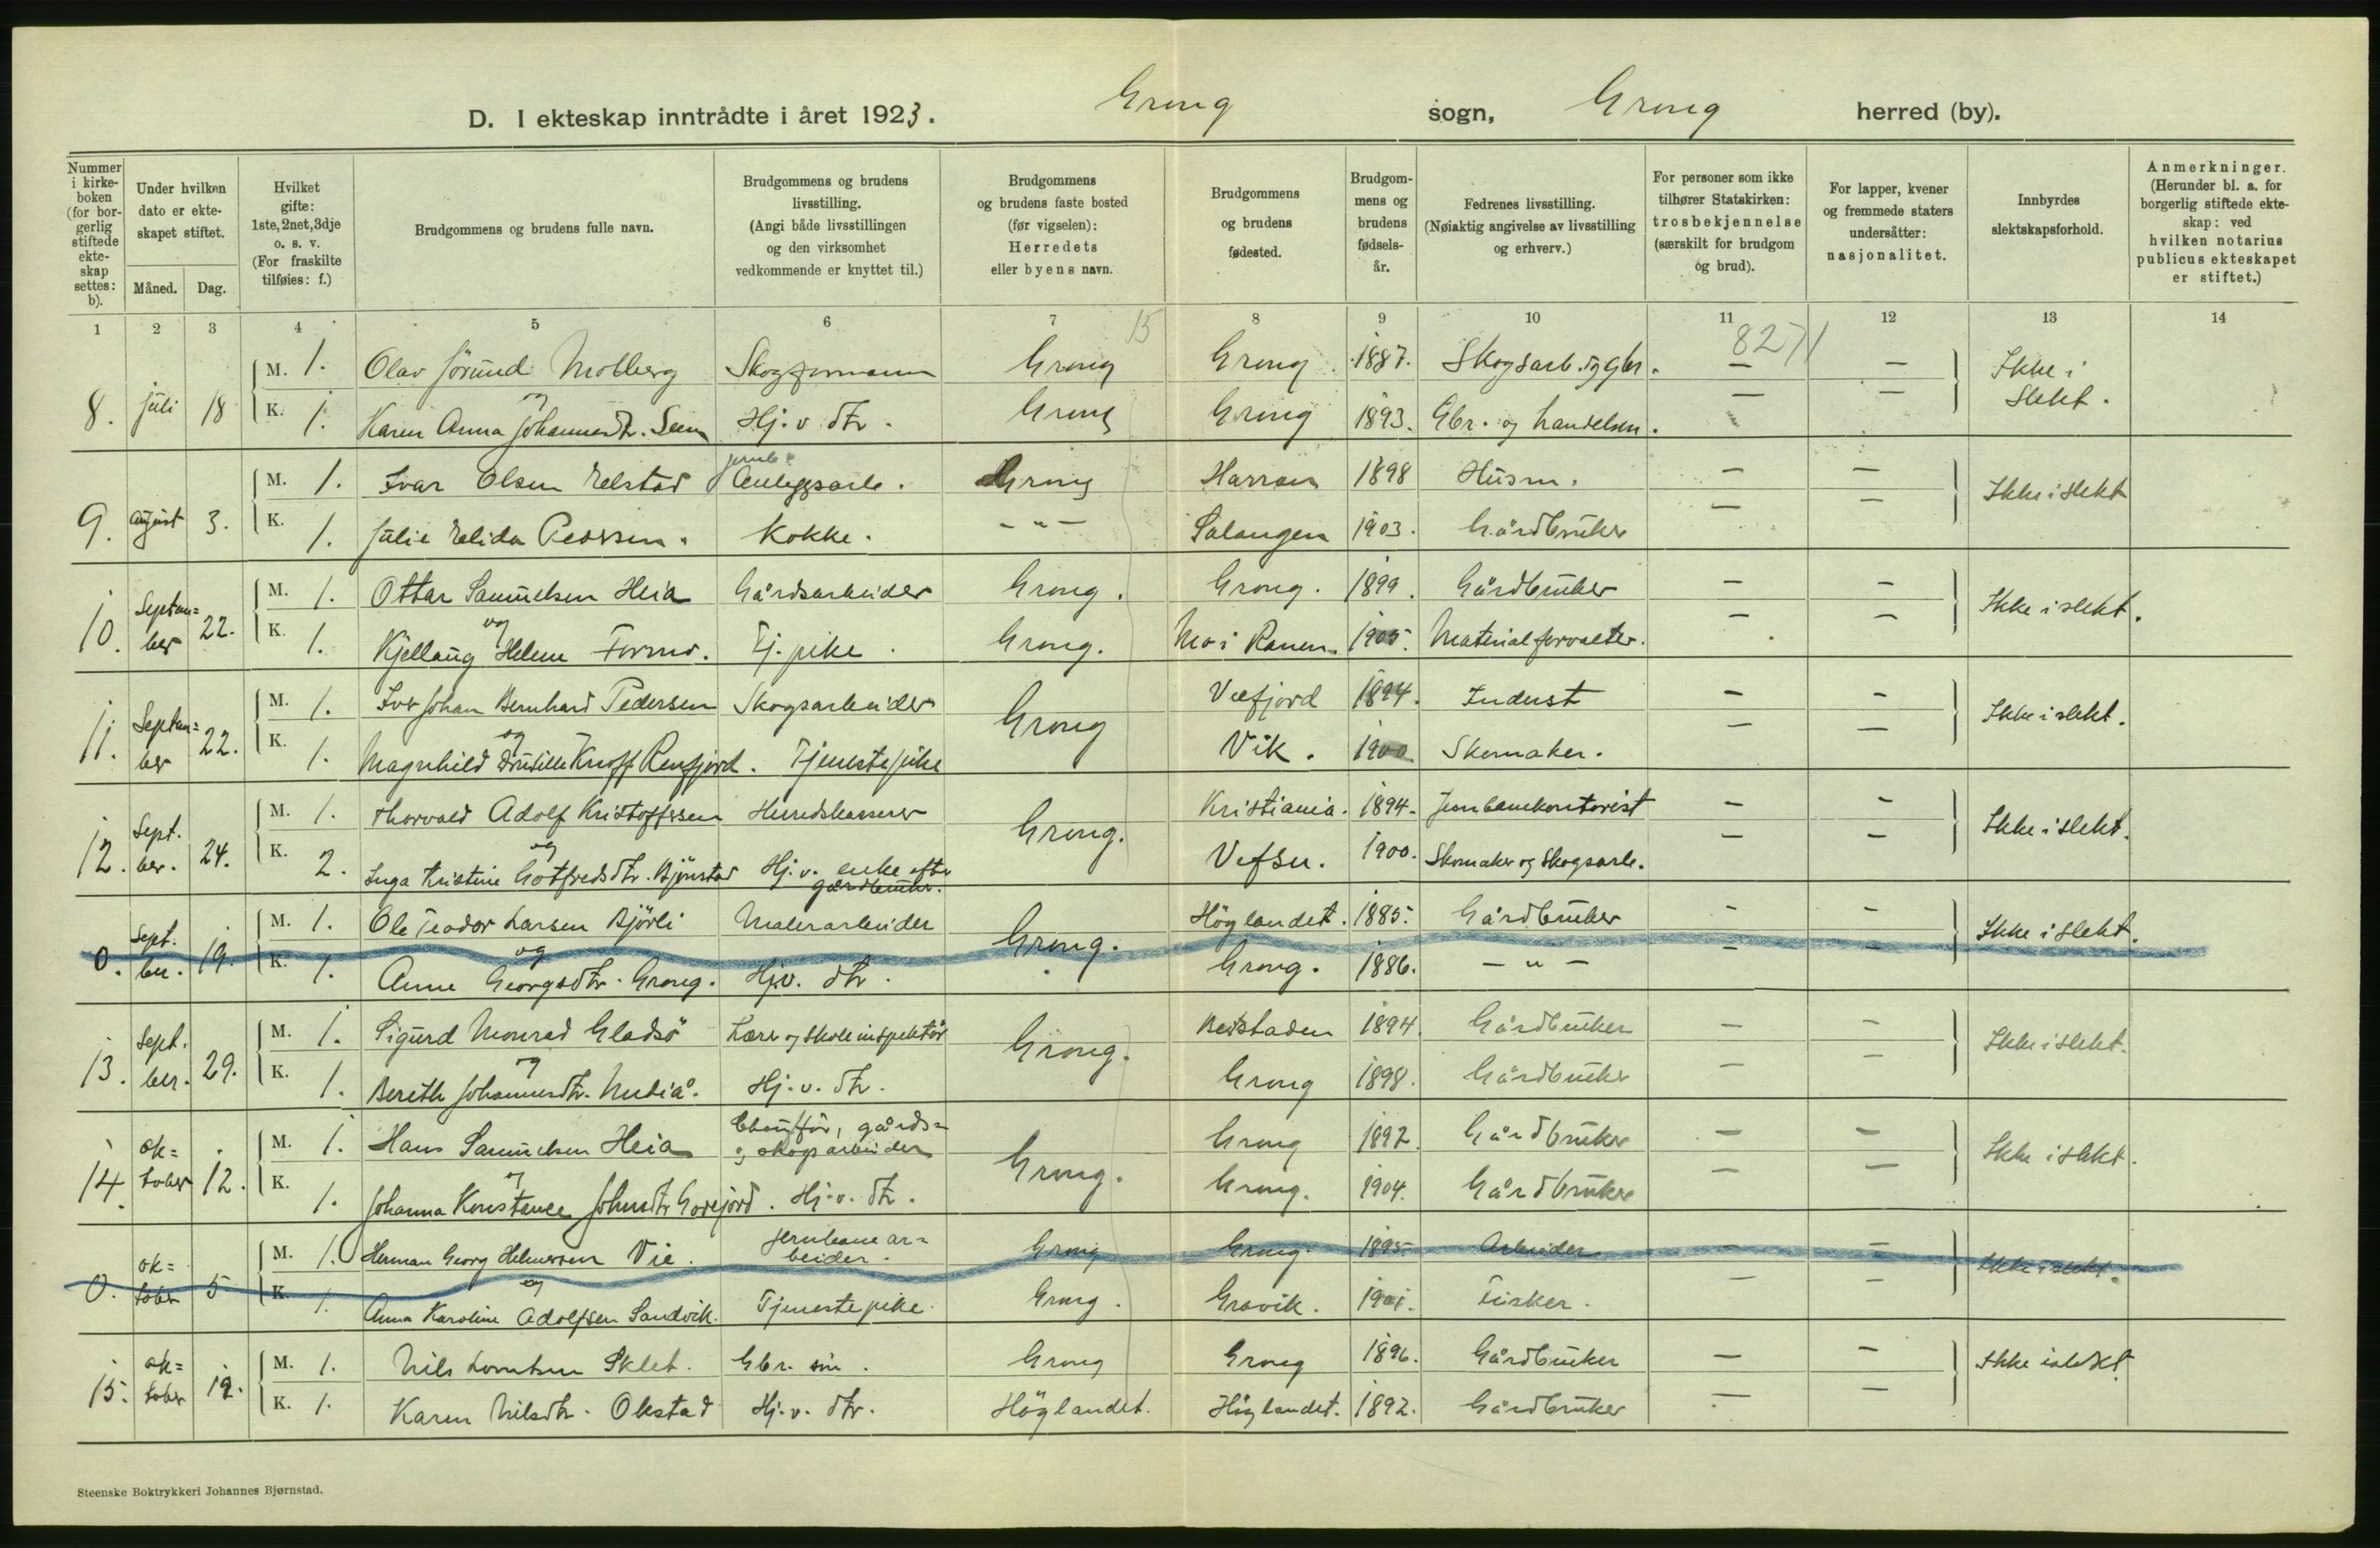 D. I ekteskap inntrådte i året 1923. Grong sogn, Grong herred (by).
Nummer i kirkeboken (for borgerlig stiftede ekteskap settes: b).
Under hvilken dato er ekteskapet stiftet.
Måned. Dag.
Hvilket gifte: 1ste, 2net, 3dje o. s. v. (For fraskilte tilføies: f.)
Brudgommens og brudens fulle navn.
Brudgommens og brudens livsstilling. (Angi både livsstillingen og den virksomhet vedkommende er knyttet til.)
Brudgommens og brudens faste bosted (før vigselen): Herredets eller byens navn.
Brudgommens og brudens fødested.
Brudgommens og brudens fødselsår.
Fedrenes livsstilling. (Nøiaktig angivelse av livsstilling og erhverv.)
For personer som ikke tilhører Statskirken: trosbekjennelse (særskilt for brudgom og brud).
For lapper, kvener og fremmede staters undersåtter: nasjonalitet.
Innbyrdes slektskapsforhold.
Anmerkninger. (Herunder bl. a. for borgerlig stiftede ekteskap: ved hvilken notarius publicus ekteskapet er stiftet.)
1 2 3 4 5 6 7 8 9 10 11 12 13 14
15 8271
M. 1. Olav Jörund Molberg Skogformann Grong Grong 1887. Skogsarb. og gbr. — — Ikke i
8. juli 18 K. 1. og Karen Anna Johannesdtr. Seem Hj. v. dtr. Grong Grong 1893. Gbr. og handelsm. — — slekt.
M. 1. Ivar Olsen Elstad jernb. Anleggsarb. Grong Harran 1898 Husm. — — Ikke i slekt
9. August 3. K. 1. Julie Elida Pedersen. Kokke. — " — Salangen 1903. Gårdbruker — —
M. 1. Ottar Samuelsen Heia Gårdsarbeider Grong. Grong. 1899. Gårdbruker — — Ikke i slekt.
10. September 22. K. 1. og Kjellaug Helene Formo. Tj. pike Grong. Mo i Ranen. 1905. Materialforvalter. — —
M. 1. Ivar Johan Bernhard Pedersen Skogsarbeider Grong Velfjord 1894. Inderst — — Ikke i slekt.
11. September 22. K. 1. og Magnhild Knoff Renfjord. Tjenestepike Vik. 1900 Skomaker. — —
M. 1. Thorvald Adolf Kristoffersen Herredskasserer Grong. Kristiania. 1894. Jernbanekontorist — — Ikke i slekt.
12. Sept.ber. 24. K. 2. og Inga Kristine Gotfredsdtr. Bjönstad Hj. v. enke efter gårdbruker. Vefsn. 1900. Skomaker og skogsarb. — —
M. 1. Ole Teodor Larsen Björli Malerarbeider Grong. Höglandet. 1885. Gårdbruker — — Ikke i slekt.
0. Sept.ber. 19. K. 1. og Anne Georgsdtr. Grong. Hj.v. dtr. Grong. 1886. — " — — —
M. 1. Sigurd Monrad Gladsö Lærer og skoleinspektör Grong. Beitstaden 1894. Gårdbruker — — Ikke i slekt.
13. Sept.ber. 29. K. 1. og Bereth Johannesdtr. Medjå. Hj. v. dtr. Grong 1898. Gårdbruker — —
M. 1. Hans Samuelsen Heia Chauffør, gårds= og skogsarbeider Grong. Grong 1892. Gårdbruker — — Ikke i slekt.
14. ok=tober 12. K. 1. og Johanna Konstance Johnsdtr. Gorejord. Hj. v. dtr. Grong. 1904. Gårdbruker — —
M. 1. Herman Georg Helmersen Vie. Jernbanear=beider. Grong Grong. 1895. Arbeider — — Ikke i slekt.
0. ok=tober 5 K. 1. og Anna Karoline Adolfsen Sandvik. Tjenestepike. Grong. Gravik. 1901. Fisker. — —
M. 1. Nils Lorntsen Sklet. Gbr. sön. Grong Grong 1896. Gårdbruker — — Ikke i slekt.
15. ok=tober 19. K. 1. Karen Nilsdtr. Okstad Hj. v. dtr. Höglandet. Höglandet. 1892. Gårdbruker — —
Steenske Boktrykkeri Johannes Bjørnstad.